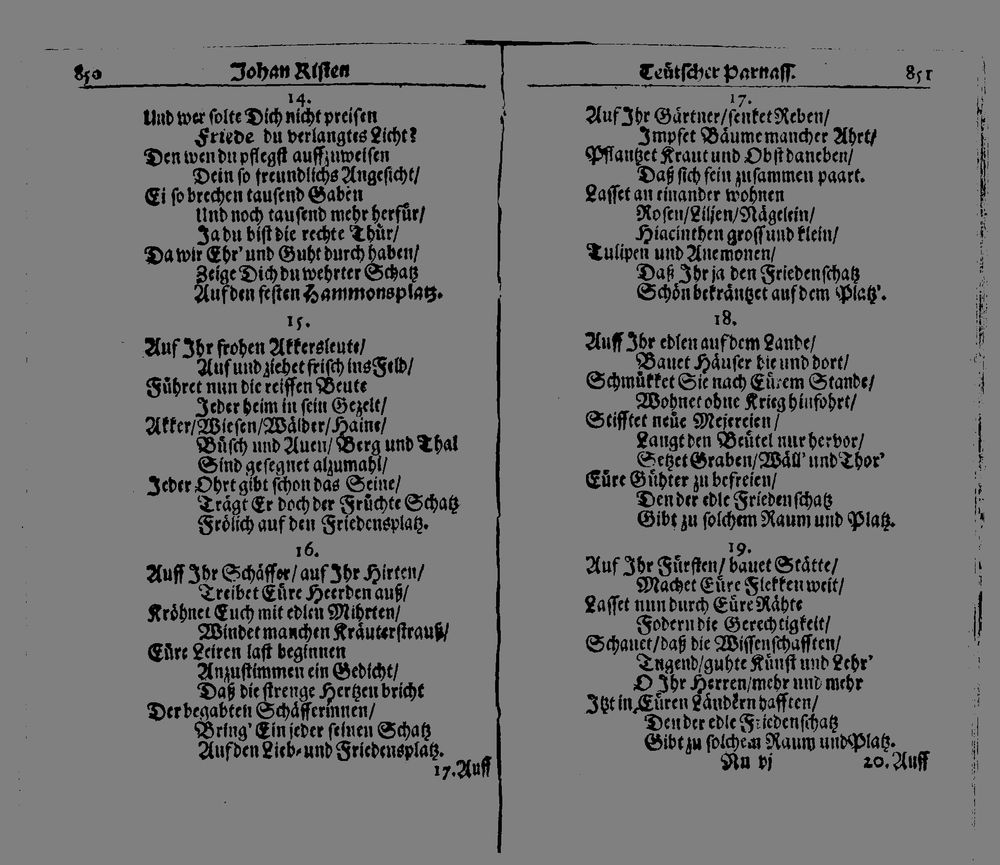 850 Johan Risten
14.
Und wer solte Dich nicht preisen
Friede du verlangtes Licht?
Den wen du pflegst auffzuweisen
Dein so freundlichs Angesicht/
Ei so brechen tausend Gaben
Und noch tausend mehr herfür/
Ja du bist die rechte Thür/
Da wir Ehr' und Guht durch haben/
Zeige Dich du wehrter Schatz
Auf den festen Hammonsplatz.
15.
Auf Ihr frohen Akkersleute/
Auf und ziehet frisch ins Feld/
Führet nun die reiffen Beute
Jeder heim in sein Gezelt/
Akker/Wiesen/Wälder/Haine/
Büsch und Auen/ Berg und Thal
Sind gesegnet alzumahl/
Jeder Ohrt gibt schon das Seine/
Trägt Er doch der Früchte Schatz
Frölich auf den Friedensplatz.
16.
Auff Ihr Schäffer/ auf Ihr Hirten/
Treibet Eüre Heerden auß/
Kröhnet Euch mit edlen Mihrten/
Windet manchen Kräuterstrauß/
Eüre Leiren last beginnen
Anzustimmen ein Gedicht/
Daß die strenge Hertzen bricht
Der begabten Schäfferinnen/
Bring' Ein jeder seinen Schatz
Auf den Lieb- und Friedensplatz.
17. Auff
Teütscher Parnass. 851
17.
Auf Ihr Gärtner/ senket Reben/
Impfet Bäume mancher Ahrt/
Pflantzet Kraut und Obst daneben/
Daß sich fein zusammen paart.
Lasset an einander wohnen
Rosen/Liljen/Nägelein/
Hiacinthen gross und klein/
Tulipen und Anemonen/
Daß Ihr ja den Friedenschatz
Schön bekräntzet auf dem Platz'.
18.
Auff Ihr edlen auf dem Lande/
Bauet Häuser hie und dort/
Schmükket Sie nach Eürem Stande/
Wohnet ohne Krieg hinfohrt/
Stifftet neüe Mejereien/
Langt den Beütel nur hervor/
Setzet Graben/ Wäll' und Thor'
Eüre Gühter zu befreien/
Den der edle Friedenschatz
Gibt zu solchem Raum und Platz.
19.
Auf Ihr Fürsten/ bauet Stätte/
Machet Eüre Flekken weit/
Lasset nun durch Eüre Rähte
Fodern die Gerechtigkeit/
Schauet/daß die Wissenschafften/
Tugend/guhte Künst und Lehr'
O Ihr Herren/mehr und mehr
Itzt in Eüren Ländern hafften/
Den der edle Friedenschatz
Gibt zu solchem Raum und Platz.
Nn vj 20. Auff